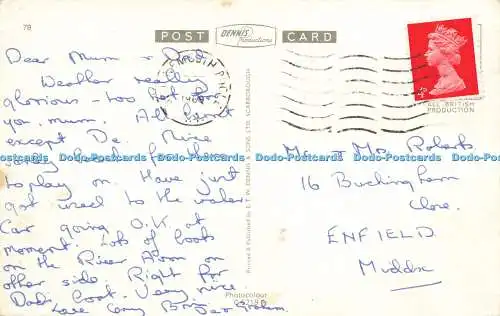 78
POST CARD
DENNIS
Productions
Dear Mum & Dad
Weather really
glorious - too hot for
you, mum. All burnt
except De. Nice
sandy beach for the
to play on. Have just
got used to the water
Car going O.K. at
moment. Lots of boats
on the River Avon on
other side. Right for
Dad's boat. Very nice
Love Gerry Brian
Dee Graham
Printed & Published by E. T. W. DENNIS & SONS LTD. SCARBOROUGH
Photocolour
4D
ALL BRITISH
PRODUCTION
Mr & Mrs Roberts
16 Buckingham
Close.
ENFIELD
Middx
Dodo-Postcards Dodo-Postcards Dodo-Postcards Dodo-Postcards Dodo-Postcards Dodo-Postcards